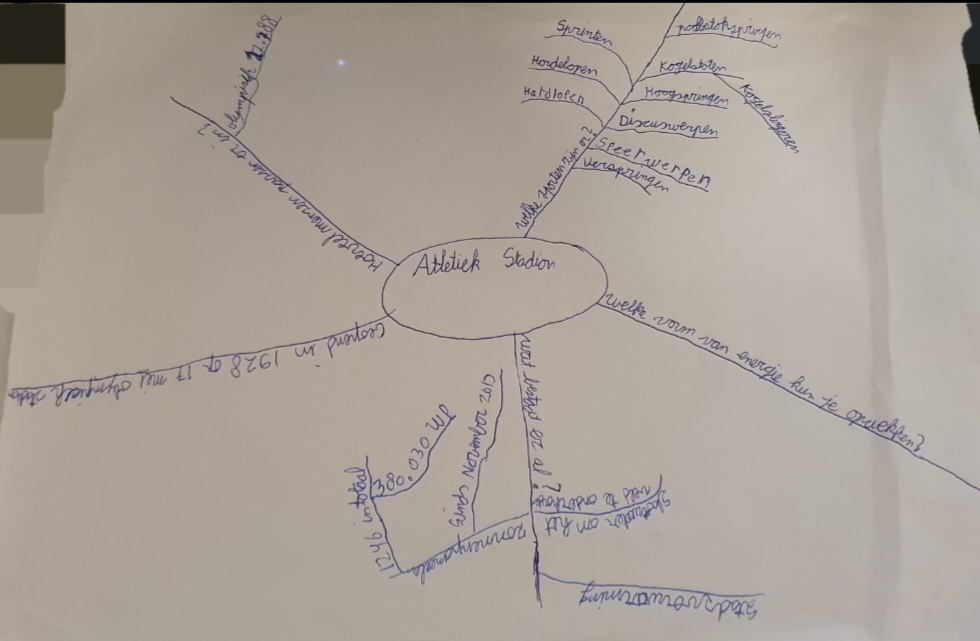 Atletiek Stadion
welke sporten zijn er?
Sprinten
Hordelopen
Hardlopen
polsstokspringen
Kogelstoten
Kogelslingeren
Hoogspringen
Discuswerpen
Speerwerpen
verspringen
welke vorm van energie kun je opwekken?
wat bestaat er al?
veld te onderhouden
Stadsverwarming
zonnepanelen
sinds november 2012
1246 in totaal
380.030 m
Geopend in 1928 op 17 mei olympisch
Hoeveel mensen passen er in?
olympisch 22.288